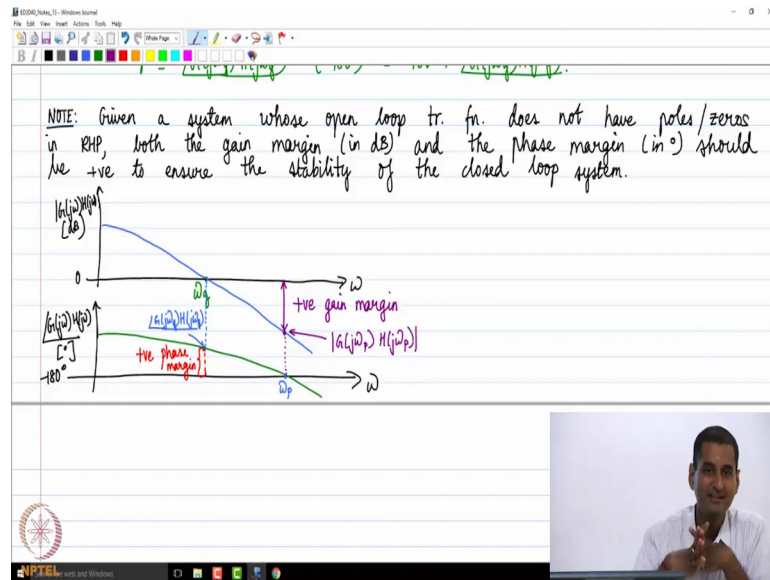 ED2040_Notes_13 - Windows Journal
File Edit View Insert Actions Tools Help
Whole Page
B I
NOTE: Given a system whose open loop tr. fn. does not have poles/zeros
in RHP, both the gain margin (in dB) and the phase margin (in °) should
be +ve to ensure the stability of the closed loop system.
|G(jω)H(jω)|
[dB]
0
ω
ωg
+ve gain margin
|G(jωp) H(jωp)|
∠G(jωg)H(jωg)
∠G(jω)H(jω)
[°]
+ve phase
margin
-180°
ωp
ω
NPTEL
web and Windows